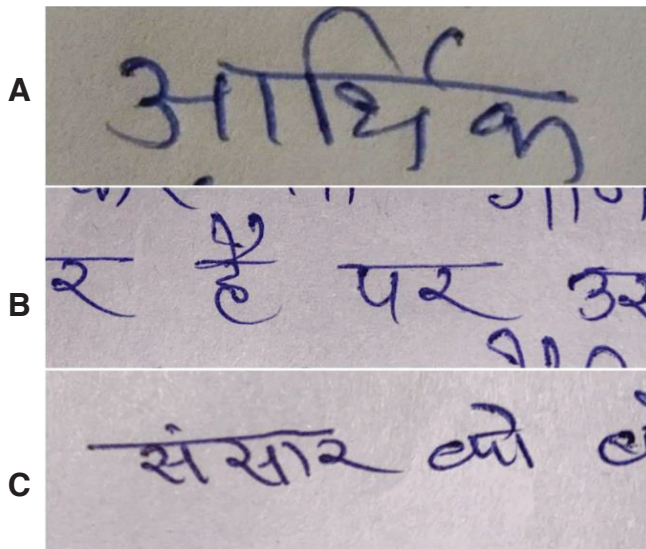 A
आर्थिक
B
र है पर
C
संसार को